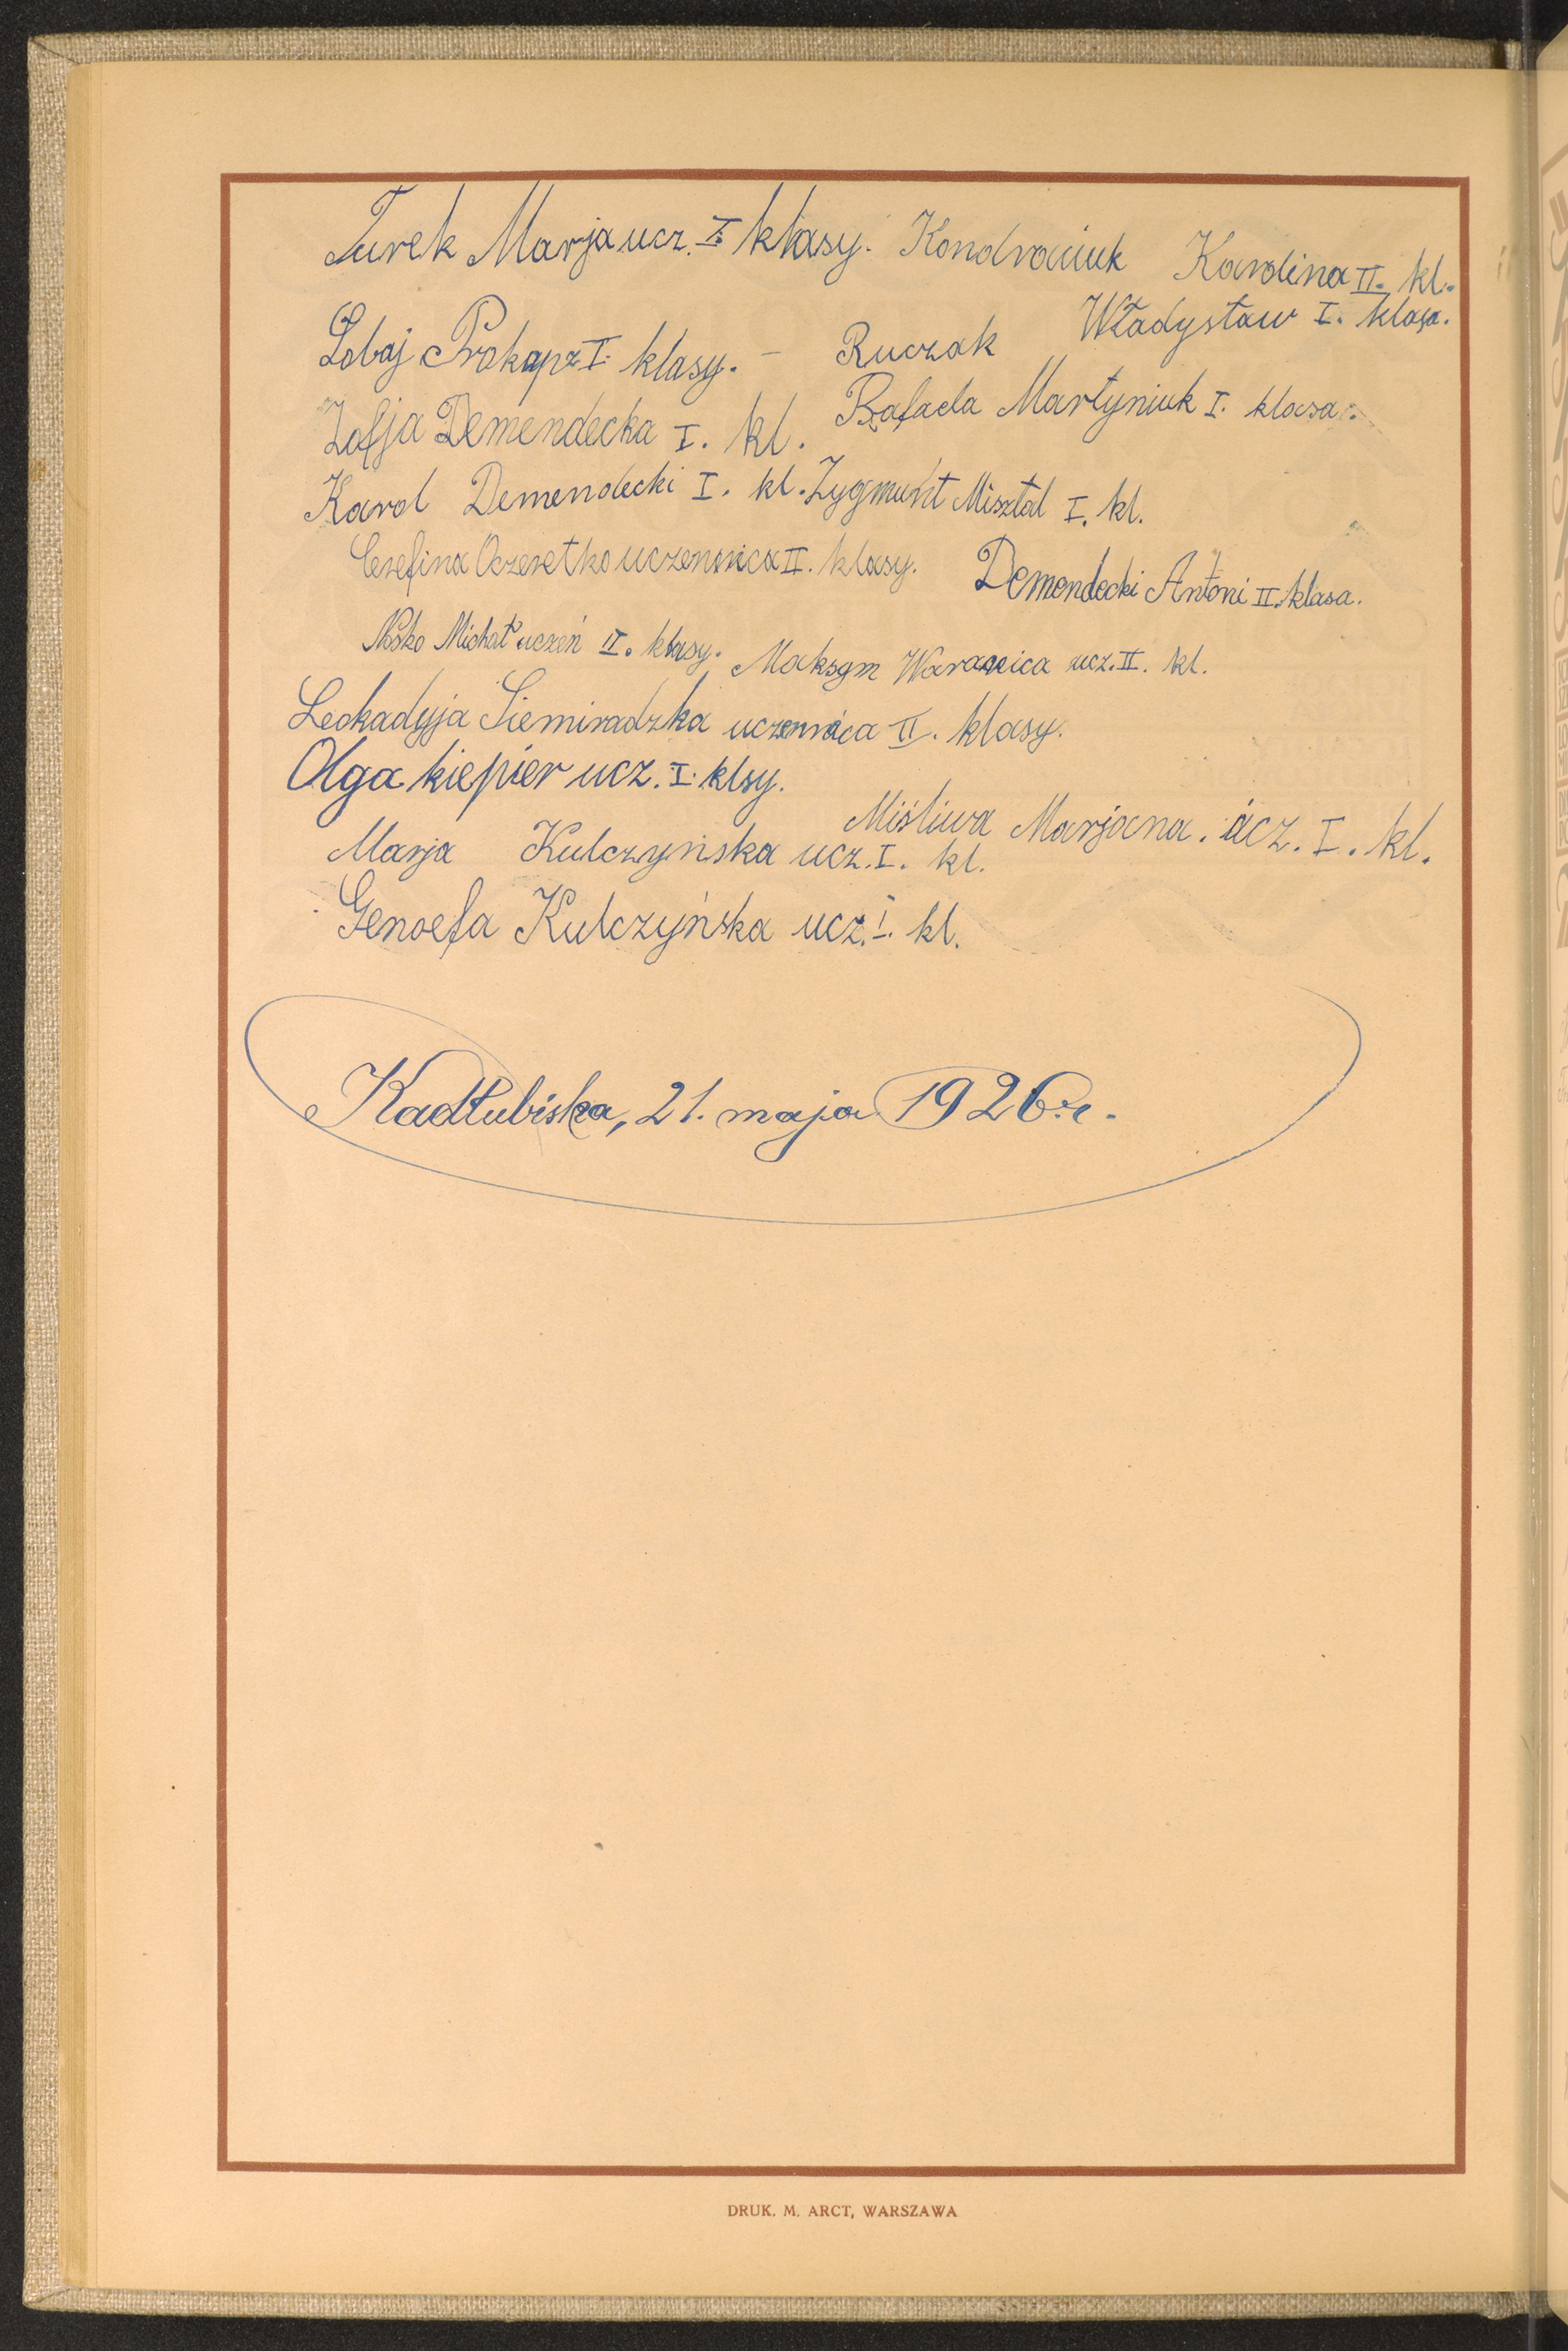 Turek Marja ucz. I. klasy. Kondraciuk Karolina II. kl.
Łobaj Prokop z I. klasy. – Ruczak Władysław I. klasa.
Zofja Demendecka I. kl. Rafaela Martyniuk I. klasa.
Karol Demendecki I. kl. Zygmunt Misztal I. kl.
Oczeretko uczennica II. klasy. Demendecki Antoni II. klasa.
Nosko Michał uczeń II. klasy. Maksym Waranica ucz. II. kl.
Leokadyja Siemiradzka uczennica II. klasy.
Olga kiepier ucz. I. klsy.
Miśliwa Marjana. ucz. I. kl.
Marja Kulczyńska ucz. I. kl.
Genoefa Kulczyńska ucz. I. kl.
Kadłubiska, 21. maja 1926 r.
DRUK. M. ARCT, WARSZAWA